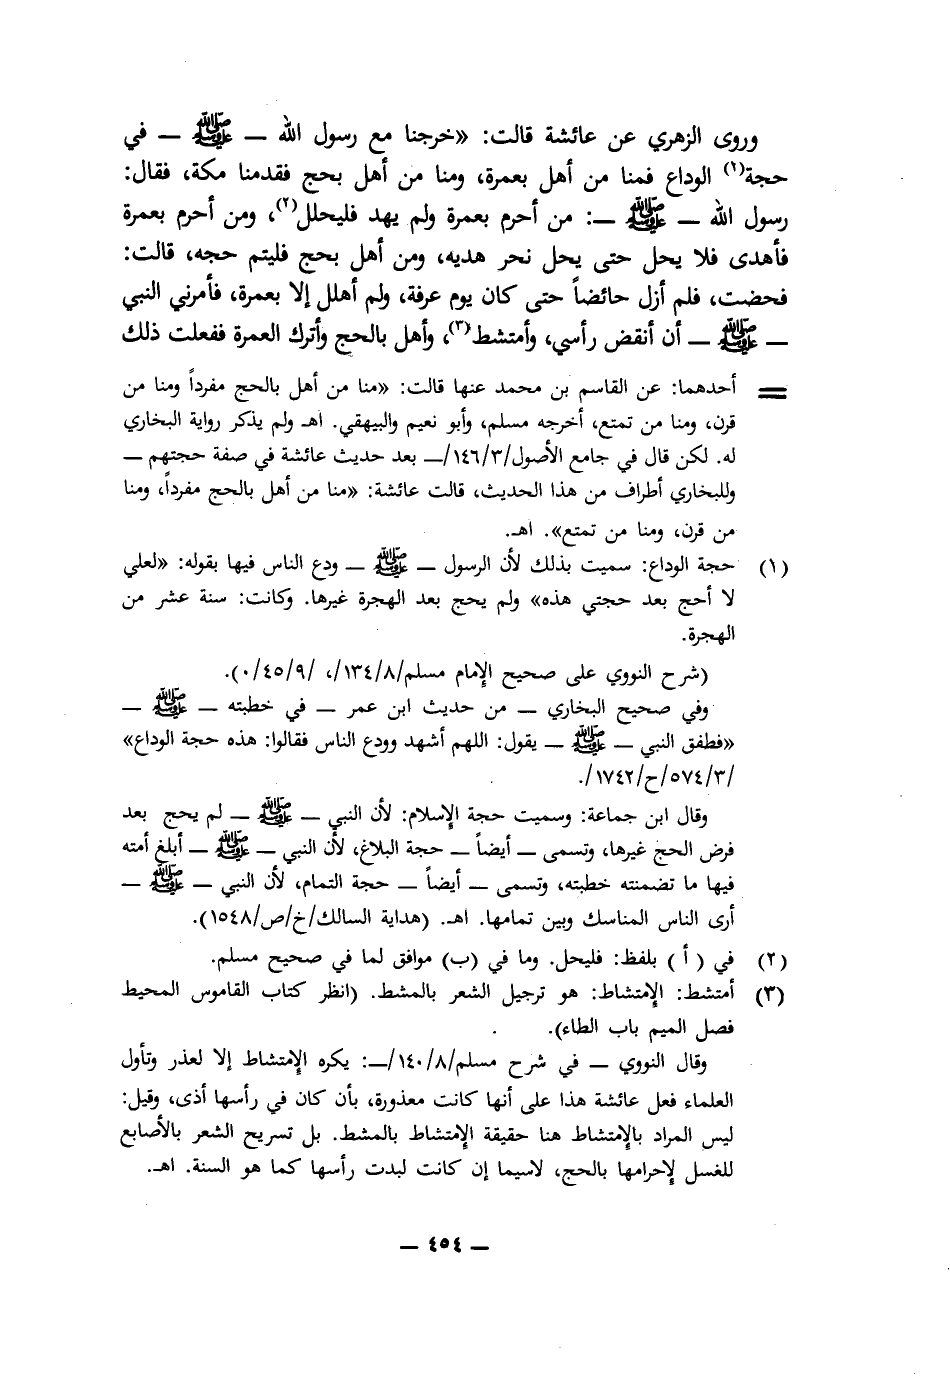 وروى الزهري عن عائشة قالت: «خرجنا مع رسول الله — ﷺ — في
حجة(١) الوداع فمنا من أهل بعمرة، ومنا من أهل بحج فقدمنا مكة، فقال:
رسول الله — ﷺ —: من أحرم بعمرة ولم يهد فليحلل(٢)، ومن أحرم بعمرة
فأهدى فلا يحل حتى يحل نحر هديه، ومن أهل بحج فليتم حجه، قالت:
فحضت، فلم أزل حائضاً حتى كان يوم عرفة، ولم أهلل إلا بعمرة، فأمرني النبي
— ﷺ — أن أنقض رأسي، وأمتشط(٣)، وأهل بالحج وأترك العمرة ففعلت ذلك
= أحدهما: عن القاسم بن محمد عنها قالت: «منا من أهل بالحج مفرداً ومنا من
قرن، ومنا من تمتع، أخرجه مسلم، وأبو نعيم والبيهقي. اهـ ولم يذكر رواية البخاري
له. لكن قال في جامع الأصول/٣/١٤٦/— بعد حديث عائشة في صفة حجتهم —
وللبخاري أطراف من هذا الحديث، قالت عائشة: «منا من أهل بالحج مفرداً، ومنا
من قرن، ومنا من تمتع». اهـ.
(١) حجة الوداع: سميت بذلك لأن الرسول — ﷺ — ودع الناس فيها بقوله: «لعلي
لا أحج بعد حجتي هذه» ولم يحج بعد الهجرة غيرها. وكانت: سنة عشر من
الهجرة.
(شرح النووي على صحيح الإمام مسلم/٨/١٣٤/، /٩/٤٥/٠).
وفي صحيح البخاري — من حديث ابن عمر — في خطبته — ﷺ —
«فطفق النبي — ﷺ — يقول: اللهم أشهد وودع الناس فقالوا: هذه حجة الوداع»
/٣/٥٧٤/ح/١٧٤٢/.
وقال ابن جماعة: وسميت حجة الإسلام: لأن النبي — ﷺ — لم يحج بعد
فرض الحج غيرها، وتسمى — أيضاً — حجة البلاغ، لأن النبي — ﷺ — أبلغ أمته
فيها ما تضمنته خطبته، وتسمى — أيضاً — حجة التمام، لأن النبي — ﷺ —
أرى الناس المناسك وبين تمامها. اهـ. (هداية السالك/خ/ص/١٥٤٨).
(٢) في ( أ ) بلفظ: فليحل. وما في (ب) موافق لما في صحيح مسلم.
(٣) أمتشط: الإمتشاط: هو ترجيل الشعر بالمشط. (انظر كتاب القاموس المحيط
فصل الميم باب الطاء).
وقال النووي — في شرح مسلم/٨/١٤٠/—: يكره الإمتشاط إلا لعذر وتأول
العلماء فعل عائشة هذا على أنها كانت معذورة، بأن كان في رأسها أذى، وقيل:
ليس المراد بالإمتشاط هنا حقيقة الإمتشاط بالمشط. بل تسريح الشعر بالأصابع
للغسل لإحرامها بالحج، لاسيما إن كانت لبدت رأسها كما هو السنة. اهـ.
— ٤٥٤ —